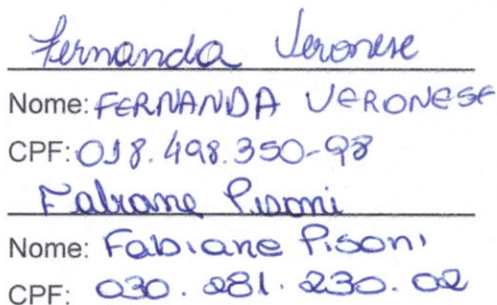 Fernanda Veronese
Nome: FERNANDA VERONESE
CPF: 018.498.350-98
Fabiane Pisoni
Nome: Fabiane Pisoni
CPF: 030.281.230.02